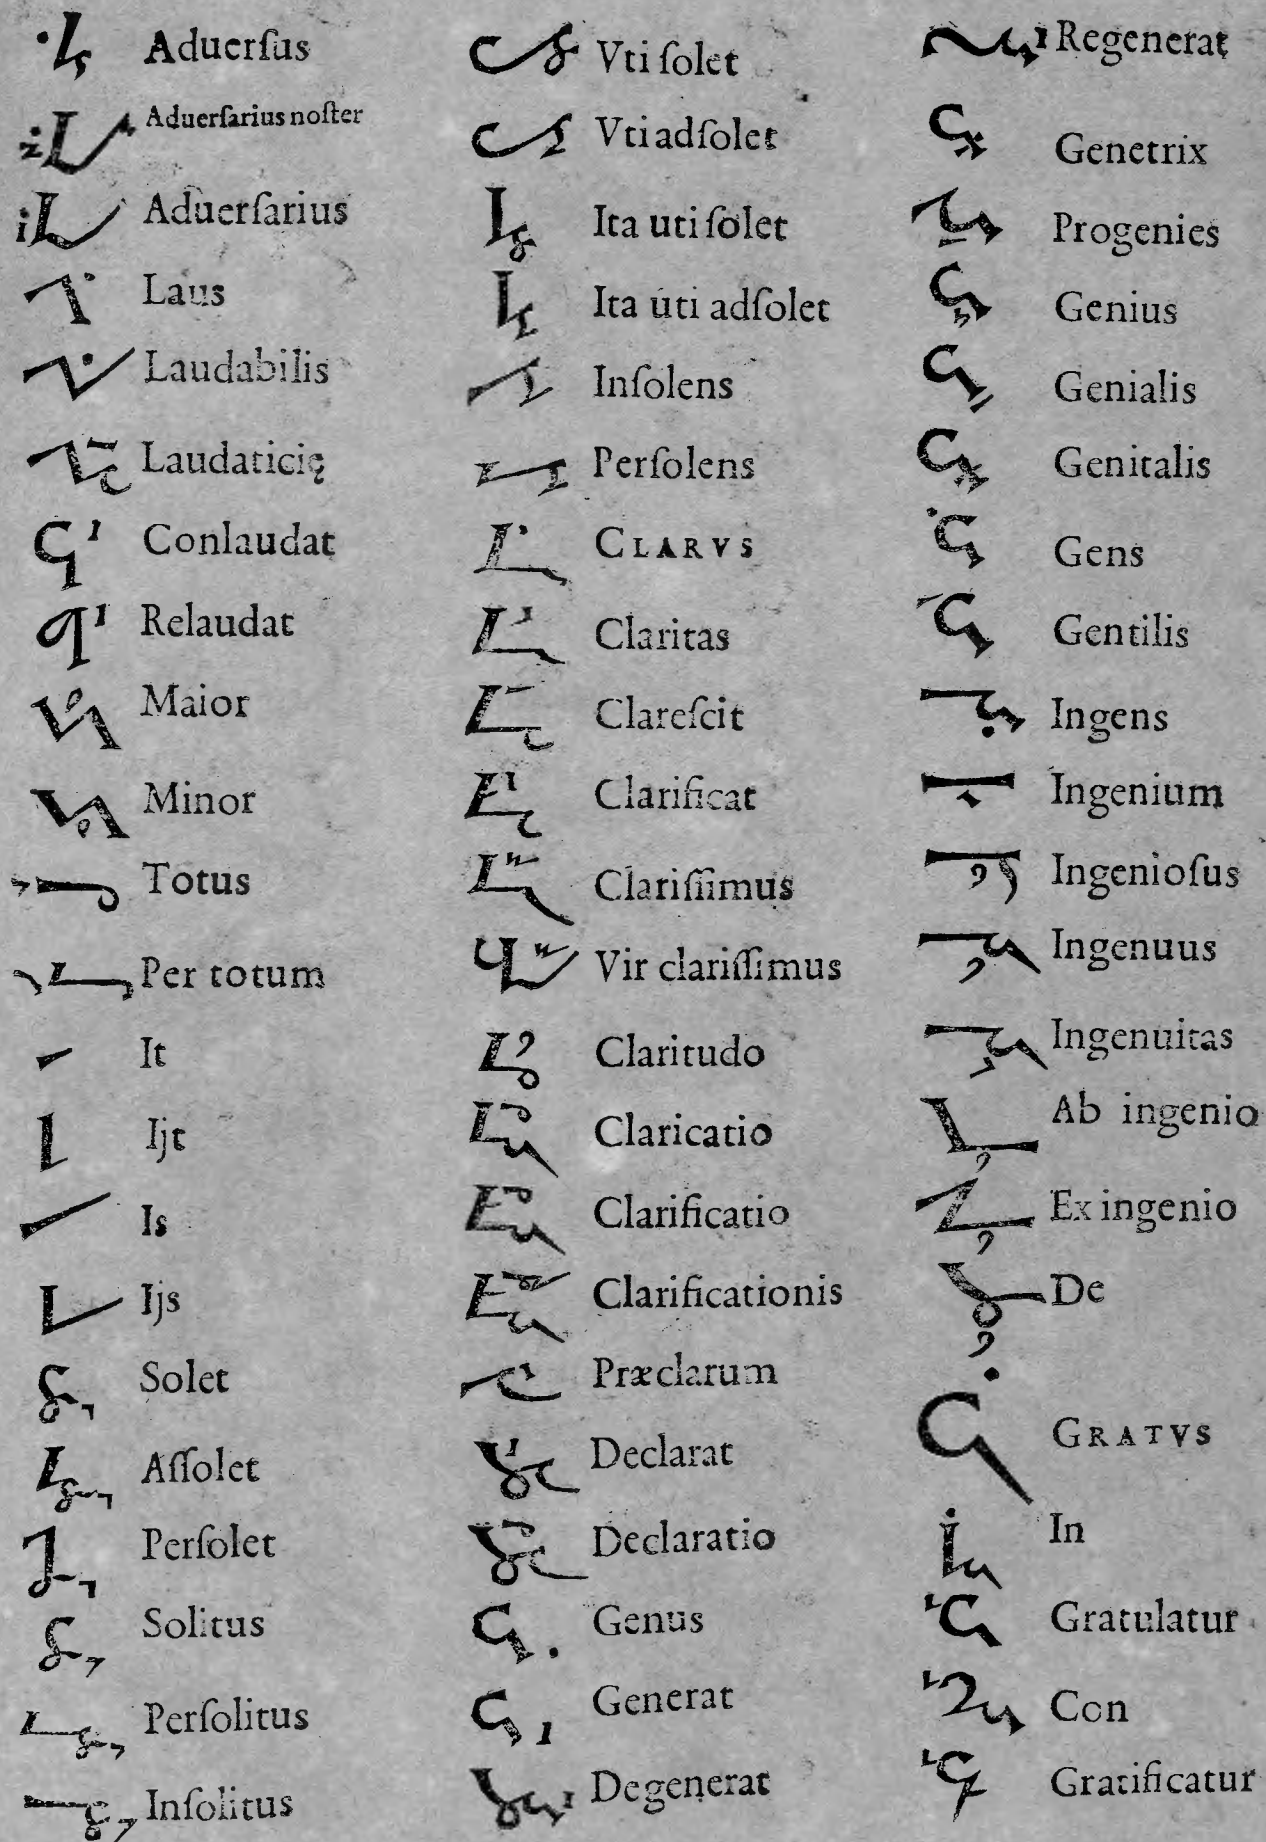 Aduerſus
Aduerſarius noſter
Aduerſarius
Laus
Laudabilis
Laudaticię
Conlaudat
Relaudat
Maior
Minor
Totus
Per totum
It
Ijt
Is
Ijs
Solet
Aſſolet
Perſolet
Solitus
Perſolitus
Inſolitus
Vti ſolet
Vti adſolet
Ita uti ſolet
Ita uti adſolet
Inſolens
Perſolens
CLARVS
Claritas
Clareſcit
Clarificat
Clariſſimus
Vir clariſſimus
Claritudo
Claricatio
Clarificatio
Clarificationis
Præclarum
Declarat
Declaratio
Genus
Generat
Degenerat
Regenerat
Genetrix
Progenies
Genius
Genialis
Genitalis
Gens
Gentilis
Ingens
Ingenium
Ingenioſus
Ingenuus
Ingenuitas
Ab ingenio
Ex ingenio
De
GRATVS
In
Gratulatur
Con
Gratificatur